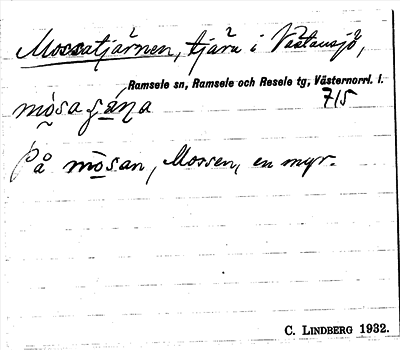 Mossatjärnen, tjärn i Västansjö,
Ramsele sn, Ramsele och Resele tg, Västernorrl. l.
715
mòsa
På mòsan, Mossen, en myr.
C. LINDBERG 1932.